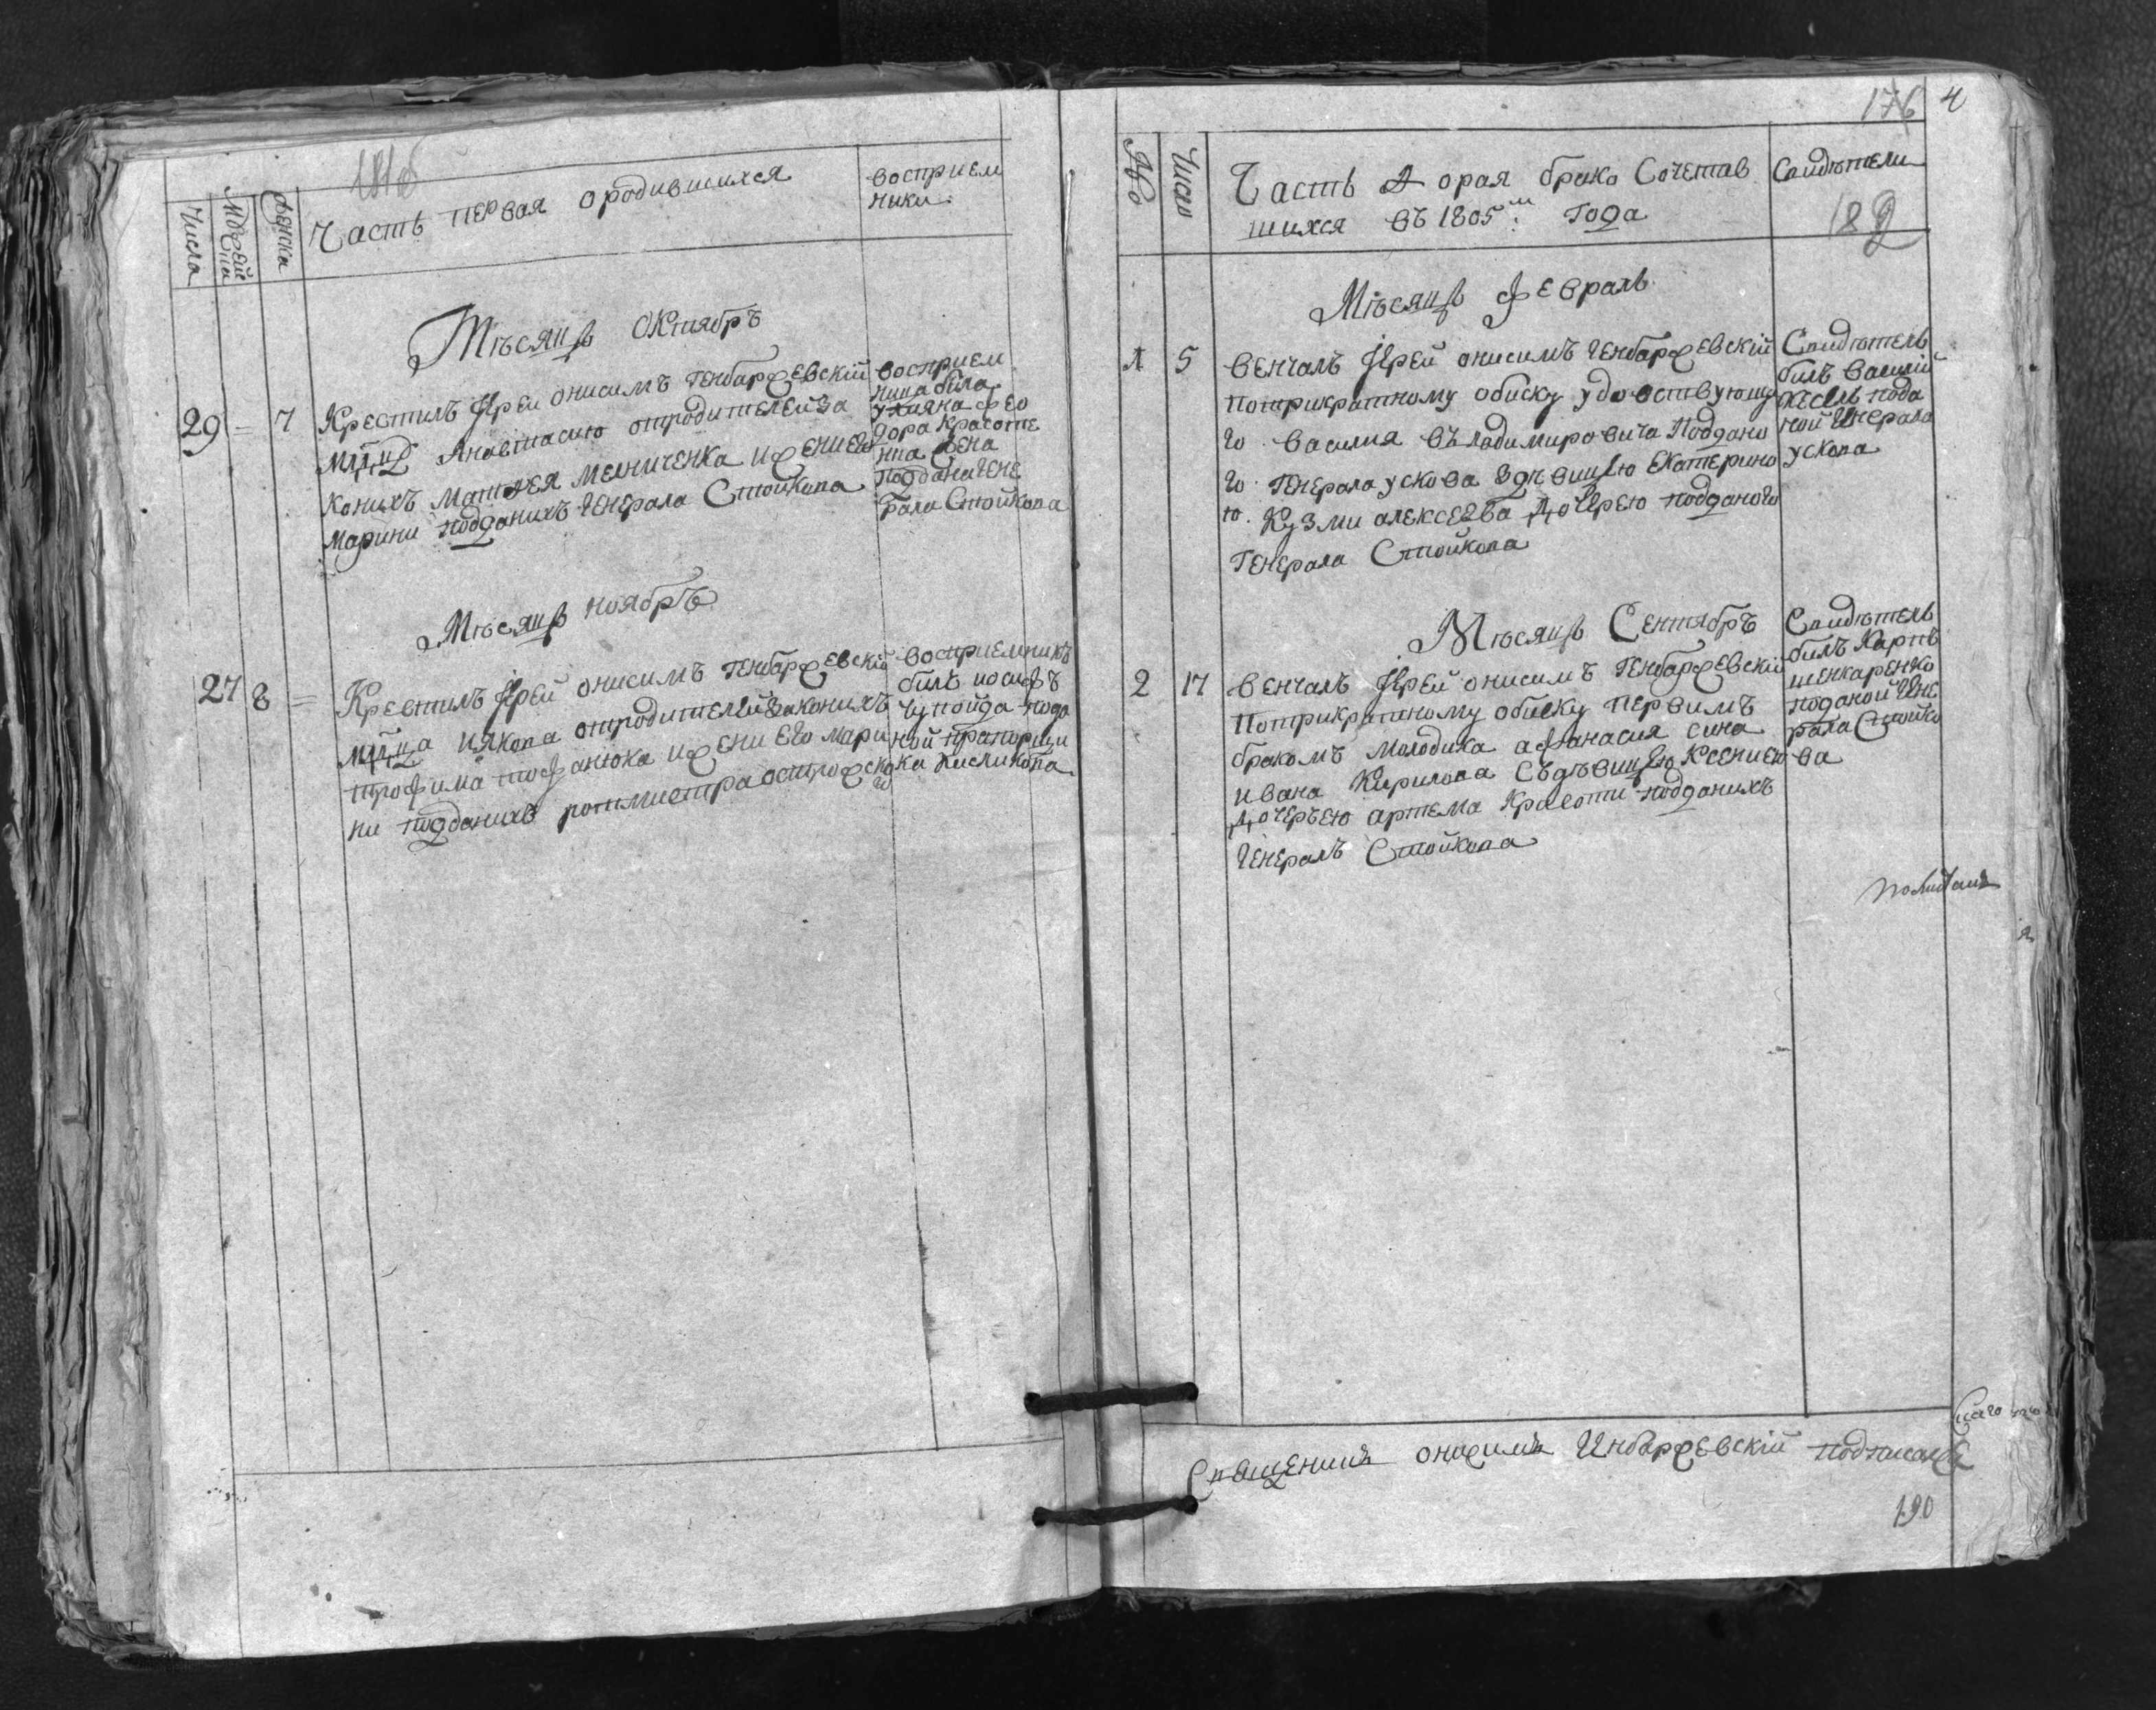 Числа
Мужей
ска
Женска
Часть первая ородившихся
восприем
ники
Мѣсяцъ Октябръ
29 = 7
Крестилъ Іерей онисимъ генбаржевскій
младенца Анастасию отродителей за
коныхъ Матфея Мелниченка ижени его
Марини подданихъ генерала Стойкова
восприем
ница била
улияна фео
дора Красоте
нка жена
Поддана гене
рала Стойкова
Мѣсяцъ ноябрЪ
27 8 =
Крестилъ Іерей онисимъ генбаржевскій
младенца иякова отродителей законихъ
трофима тофанюка ижени его мари
ни подданихъ ротмистра острожско
го
восприемникъ
билъ иосифъ
чупойда подда
ной прапорщи
ка Кисликова
176 4
№
Число
Часть Вторая брако Сочетав
шихся въ 1805м: года
Свидѣтели
182
Мѣсяцъ февраль
1 5
Венчалъ Іерей онисимъ генбаржевскій
Потрикратному обиску удовствующа
го Василия въладимировича Поддано
го генерала ускова здѣвицею Екатерино
ю Кузми алексеева дочерею подданого
генерала Стойкова
Свидѣтель
билъ Василий
подда
ной генерала
ускова
Мѣсяцъ Сентябръ
2 17
Венчалъ Іерей онисимъ генбаржевскій
Потрикратному обиску первимъ
бракомъ молодика афанасия сина
ивана Кирилова съдѣвицею Ксениею
дочерьею артема Красоти подданихъ
генералъ Стойкова
Свидѣтель
билъ Карпъ
шенкаренко
поданой гене
рала Стойко
ва
Священникъ онисимъ генбаржевскій подписался
190